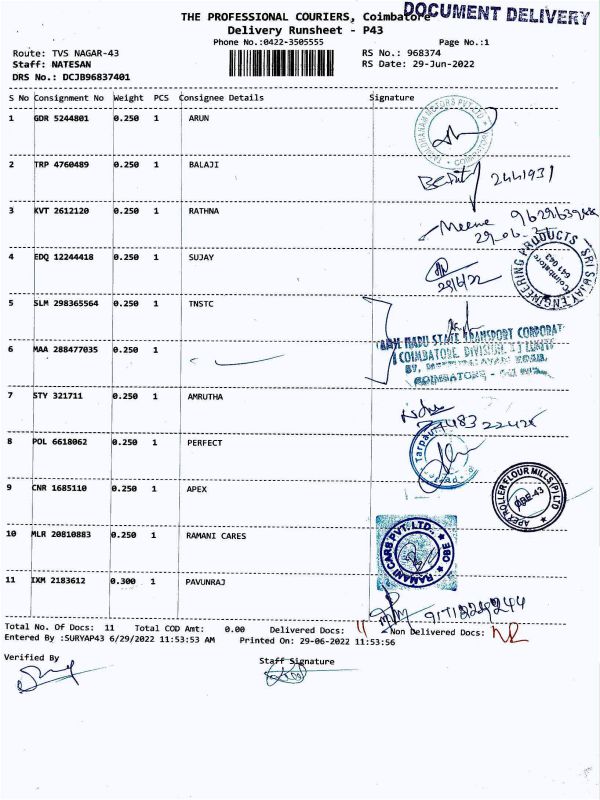 DOCUMENT DELIVERY
THE PROFESSIONAL COURIERS, Coimbatore
Delivery Runsheet - P43
Phone No.:0422-3505555 Page No.:1
Route: TVS NAGAR-43 RS No.: 968374
Staff: NATESAN RS Date: 29-Jun-2022
DRS No.: DCJB96837401
S No Consignment No Weight PCS Consignee Details Signature
1 GDR 5244801 0.250 1 ARUN
2 TRP 4760489 0.250 1 BALAJI
2441931
3 KVT 2612120 0.250 1 RATHNA
Meena
4 EDQ 12244418 0.250 1 SUJAY
29/6/22
SRI SUJAY ENGINEERING PRODUCTS
Coimbatore
641 043
5 SLM 298365564 0.250 1 TNSTC
TAMIL NADU STATE TRANSPORT CORPORAT
COIMBATORE DIVISION
6 MAA 288477035 0.250 1
COIMBATORE
7 STY 321711 0.250 1 AMRUTHA
8 POL 6618062 0.250 1 PERFECT
9 CNR 1685110 0.250 1 APEX
APEX ROLLER FLOUR MILLS (P) LTD
CBE-43
10 MLR 20810883 0.250 1 RAMANI CARES
RAMANI CARS PVT. LTD., CBE
11 IXM 2183612 0.300 1 PAVUNRAJ
Total No. Of Docs: 11 Total COD Amt: 0.00 Delivered Docs: 11 Non Delivered Docs:
Entered By :SURYAP43 6/29/2022 11:53:53 AM Printed On: 29-06-2022 11:53:56
Verified By Staff Signature